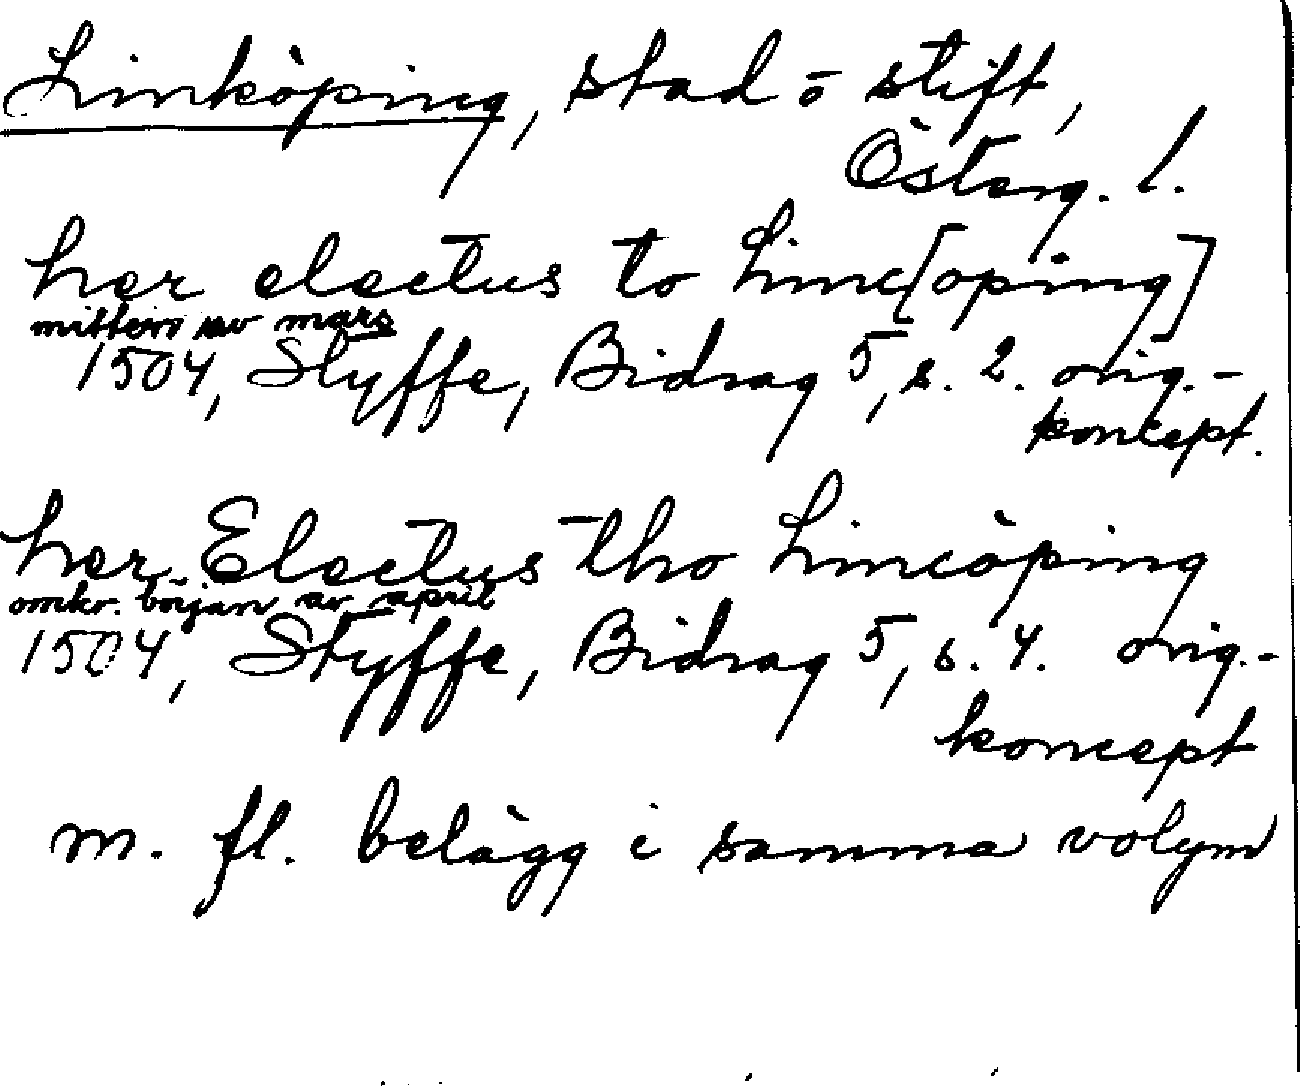 Linköping, stad o stift,
Österg. l.
her electus to Linc[öping]
mitten av mars
1504, Styffe, Bidrag 5, s. 2. orig.-
koncept.
her Electus tho Lincöping
omkr. början av april
1504, Styffe, Bidrag 5, s. 4. orig.-
koncept
m. fl. belägg i samma volym